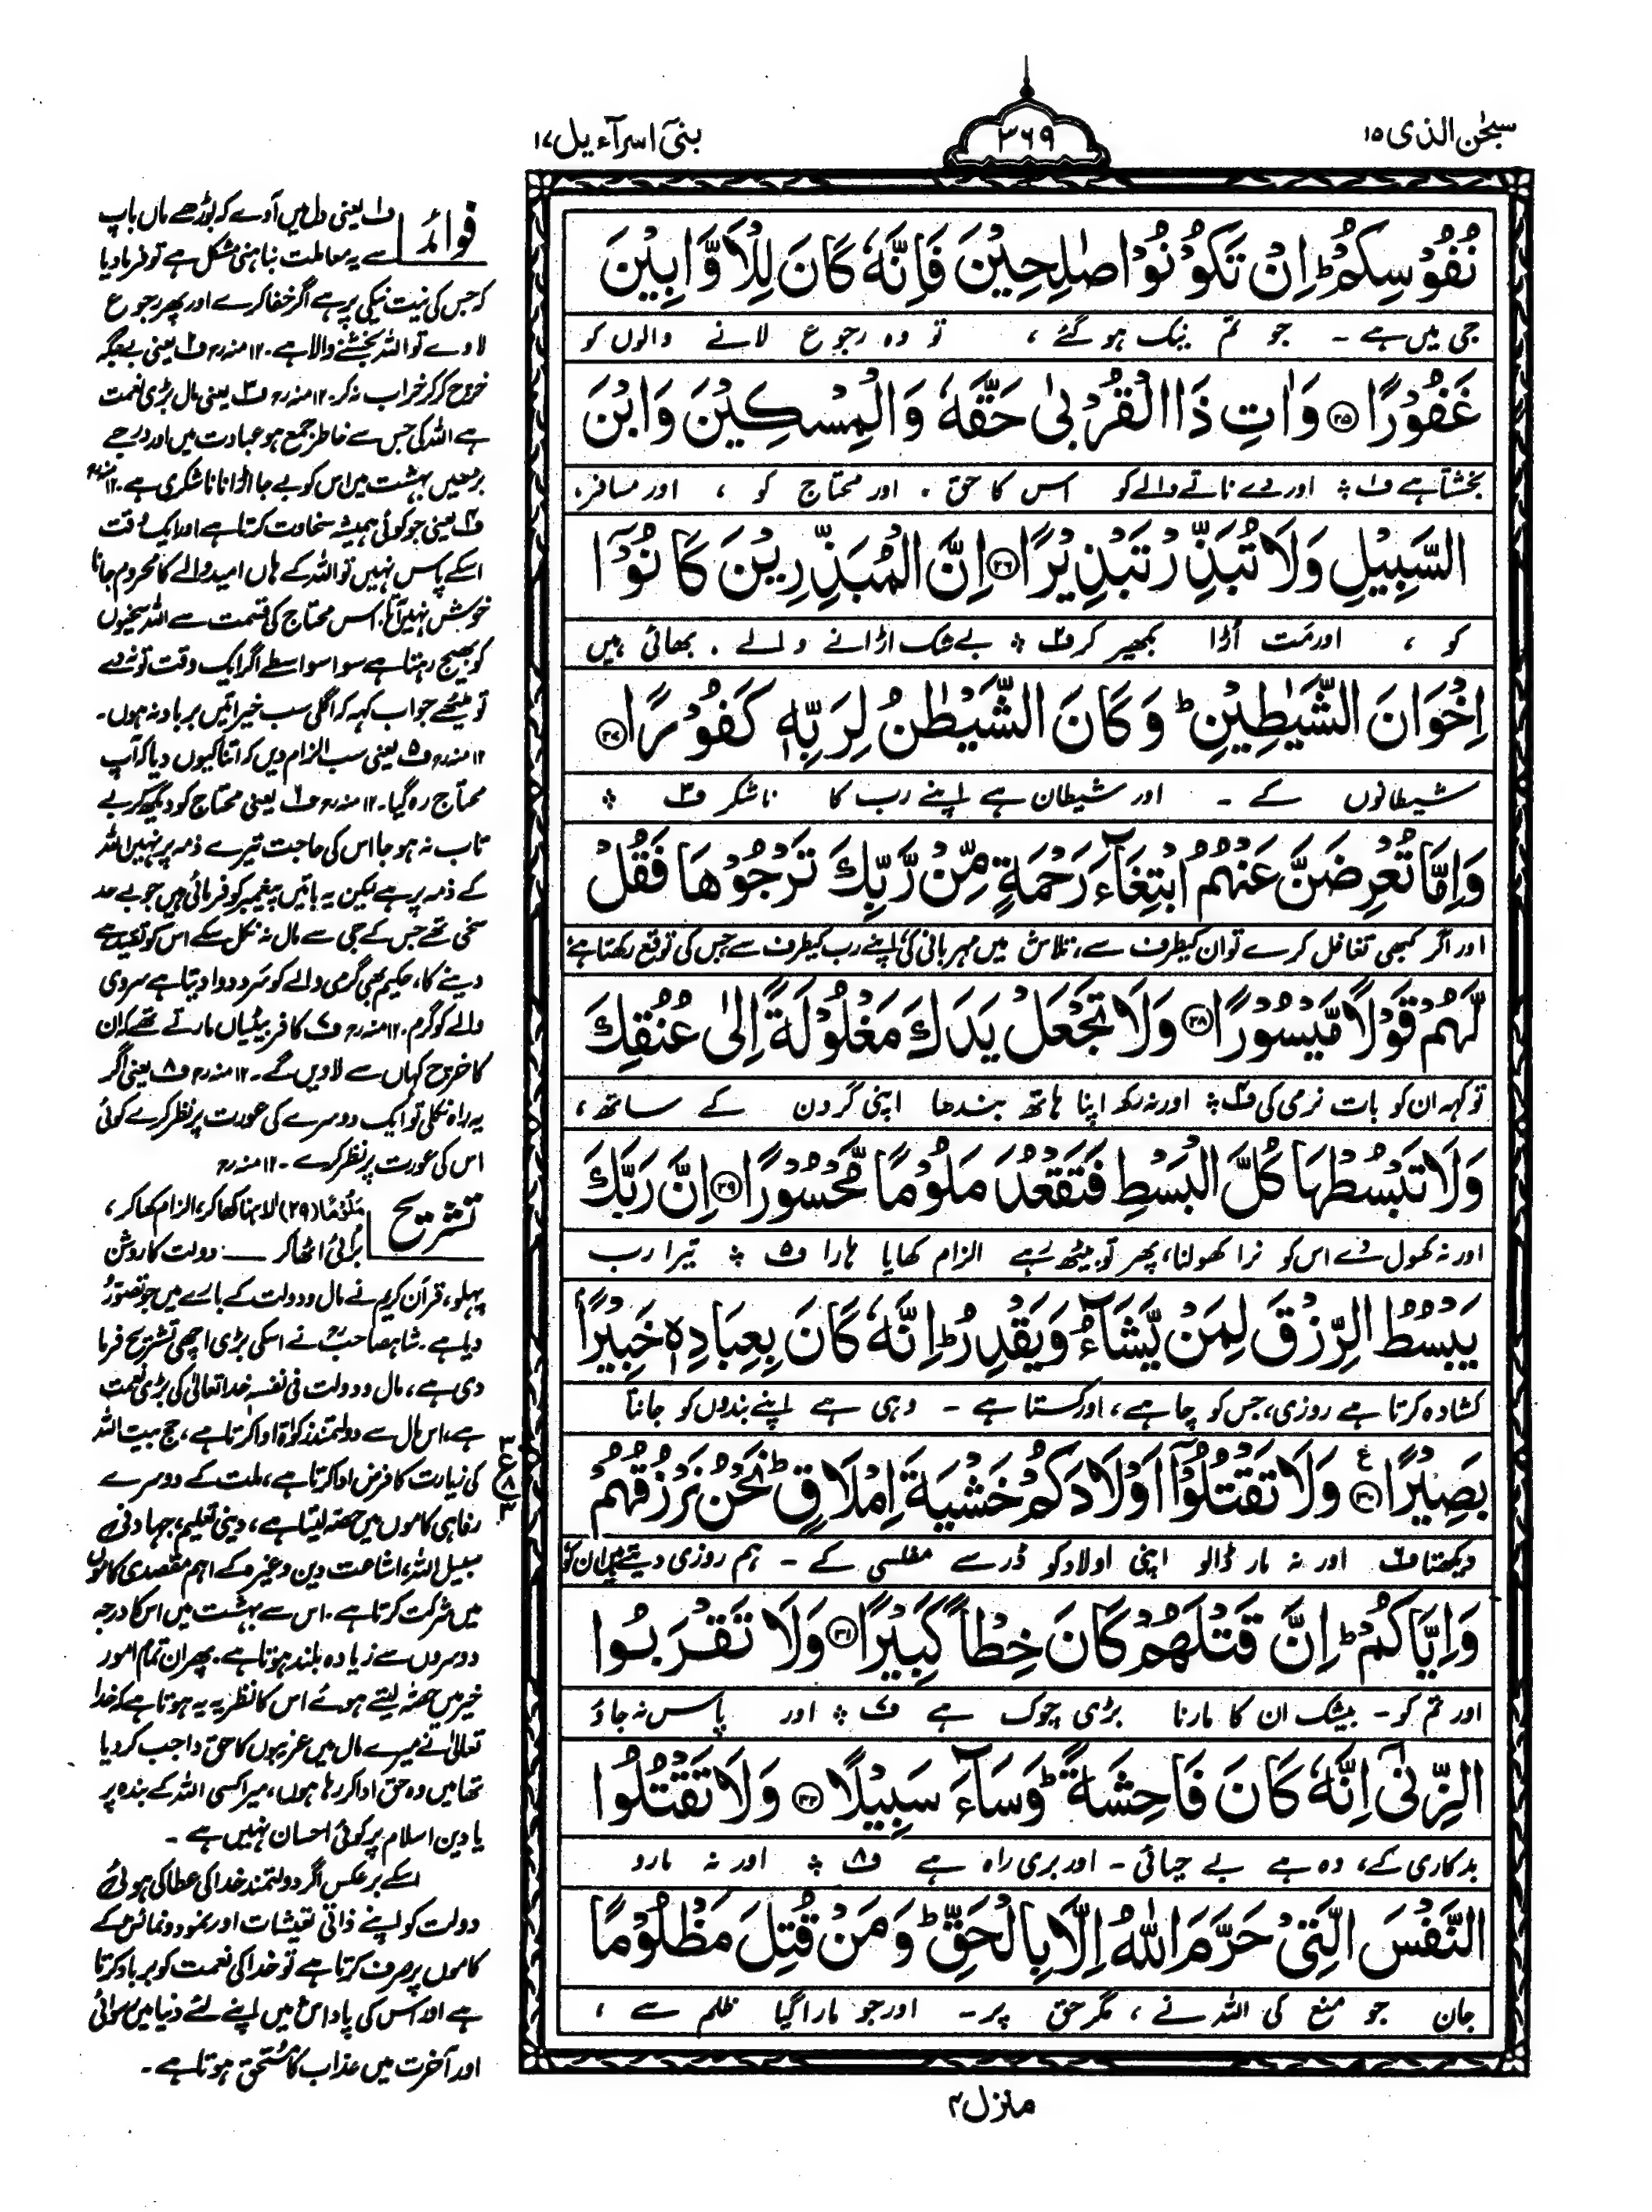 سبحٰن الذی ۱۵
۳۶۹
بنیٓ اسرآءیل ۱۷
نُفُوْسِكُمْ ؕ اِنْ تَكُوْنُوْا صٰلِحِیْنَ فَاِنَّهٗ كَانَ لِلْاَوَّابِیْنَ
جی میں ہے ۔ جو تم نیک ہو گئے ، تو وہ رجوع لانے والوں کو
غَفُوْرًا ﴿۲۵﴾ وَاٰتِ ذَا الْقُرْبٰی حَقَّهٗ وَالْمِسْكِیْنَ وَابْنَ
بخشتا ہے ف۱ ؞ اور دے ناتے والے کو اس کا حق ، اور محتاج کو ، اور مسافر
السَّبِیْلِ وَلَا تُبَذِّرْ تَبْذِیْرًا ﴿۲۶﴾ اِنَّ الْمُبَذِّرِیْنَ كَانُوْۤا
کو ، اور مت اُڑا بکھیر کر ف۲ ؞ بے شک اڑانے والے ، بھائی ہیں
اِخْوَانَ الشَّیٰطِیْنِ ؕ وَكَانَ الشَّیْطٰنُ لِرَبِّهٖ كَفُوْرًا ﴿۲۷﴾
شیطانوں کے ۔ اور شیطان ہے اپنے رب کا ناشکر ف۳ ؞
وَاِمَّا تُعْرِضَنَّ عَنْهُمُ ابْتِغَآءَ رَحْمَةٍ مِّنْ رَّبِّكَ تَرْجُوْهَا فَقُلْ
اور اگر کبھی تغافل کرے تو ان کیطرف سے، تلاش میں مہربانی کی اپنے رب کیطرف سے جس کی توقع رکھتا ہے
لَّهُمْ قَوْلًا مَّیْسُوْرًا ﴿۲۸﴾ وَلَا تَجْعَلْ یَدَكَ مَغْلُوْلَةً اِلٰی عُنُقِكَ
تو کہہ ان کو بات نرمی کی ف۴ ؞ اور نہ رکھ اپنا ہاتھ بندھا اپنی گردن کے ساتھ ،
وَلَا تَبْسُطْهَا كُلَّ الْبَسْطِ فَتَقْعُدَ مَلُوْمًا مَّحْسُوْرًا ﴿۲۹﴾ اِنَّ رَبَّكَ
اور نہ کھول دے اس کو نرا کھولنا، پھر تو بیٹھ رہے الزام کھایا ہارا ف۵ ؞ تیرا رب
یَبْسُطُ الرِّزْقَ لِمَنْ یَّشَآءُ وَیَقْدِرُ ؕ اِنَّهٗ كَانَ بِعِبَادِهٖ خَبِیْرًۢا
کشادہ کرتا ہے روزی، جس کو چاہے، اور کستا ہے ۔ وہی ہے اپنے بندوں کو جانتا
بَصِیْرًا ﴿۳۰﴾ وَلَا تَقْتُلُوْۤا اَوْلَادَكُمْ خَشْیَةَ اِمْلَاقٍ ؕ نَحْنُ نَرْزُقُهُمْ
دیکھتا ف۶ اور نہ مار ڈالو اپنی اولاد کو ڈر سے مفلسی کے ۔ ہم روزی دیتے ہیں ان کو
وَاِیَّاكُمْ ؕ اِنَّ قَتْلَهُمْ كَانَ خِطْاً كَبِیْرًا ﴿۳۱﴾ وَلَا تَقْرَبُوا
اور تم کو ۔ بیشک ان کا مارنا بڑی چوک ہے ف۷ ؞ اور پاس نہ جاؤ
الزِّنٰۤی اِنَّهٗ كَانَ فَاحِشَةً ؕ وَسَآءَ سَبِیْلًا ﴿۳۲﴾ وَلَا تَقْتُلُوا
بدکاری کے، وہ ہے بے حیائی ۔ اور بری راہ ہے ف۸ ؞ اور نہ مارو
النَّفْسَ الَّتِیْ حَرَّمَ اللّٰهُ اِلَّا بِالْحَقِّ ؕ وَمَنْ قُتِلَ مَظْلُوْمًا
جان جو منع کی اللہ نے ، مگر حق پر ۔ اور جو مارا گیا ظلم سے ،
منزل ۴
فوائد
ف۱ یعنی دل میں آوے کہ بوڑھے ماں باپ
سے یہ معاملت نباہنی مشکل ہے تو فرما دیا
کہ جس کی نیت نیکی پر ہے اگر خفا کرے اور پھر رجوع
لاوے تو اللہ بخشنے والا ہے ۔ ۱۲ منہ رح ف۲ یعنی بے جگہ
خرچ کر کر خراب نہ کر ۔ ۱۲ منہ رح ف۳ یعنی مال بڑی نعمت
ہے اللہ کی جس سے خاطر جمع ہو عبادت میں اور درجے
بڑھیں بہشت میں اس کو بے جا اڑانا ناشکری ہے ۔ ۱۲ منہ رح
ف۴ یعنی جو کوئی ہمیشہ سخاوت کرتا ہے اور ایک وقت
اسکے پاس نہیں تو اللہ کے ہاں امید والے کا محروم جانا
خوش نہیں آتا، اس محتاج کی قسمت سے اللہ سخیوں
کو بھیج رہتا ہے سو اسواسطے اگر ایک وقت تو نہ دے
تو میٹھے جواب کہہ کہ اگلی سب خیراتیں برباد نہ ہوں ۔
۱۲ منہ رح ف۵ یعنی سب الزام دیں کہ اتنا کیوں دیا کہ آپ
محتاج رہ گیا ۔ ۱۲ منہ رح ف۶ یعنی محتاج کو دیکھ کر بے
تاب نہ ہو جا اس کی حاجت تیرے ذمہ پر نہیں اللہ
کے ذمہ پر ہے لیکن یہ باتیں پیغمبر کو فرمائی ہیں جو بے حد
سخی تھے جس کے جی سے مال نہ نکل سکے اس کو تقید ہے
دینے کا، حکیم بھی گرمی والے کو سرد دوا دیتا ہے سردی
والے کو گرم ۔ ۱۲ منہ رح ف۷ کافر بیٹیاں مارتے تھے کہ ان
کا خرچ کہاں سے لاویں گے ۔ ۱۲ منہ رح ف۸ یعنی اگر
یہ راہ نکلی تو ایک دوسرے کی عورت پر نظر کرے کوئی
اس کی عورت پر نظر کرے ۔ ۱۲ منہ رح
تشریح
مَلُوْمًا (۲۹) الاہنا کھا کر، الزام کھا کر،
برائی اٹھا کر ــــ : دولت کا روشن
پہلو، قرآن کریم نے مال و دولت کے بارے میں جو تصوّر
دیا ہے ۔ شاہ صاحب رح نے اسکی بڑی اچھی تشریح فرما
دی ہے، مال و دولت فی نفسہٖ خدا تعالیٰ کی بڑی نعمت
ہے، اس مال سے دولتمند زکوٰۃ ادا کرتا ہے، حج بیت اللہ
کی زیارت کا فرض ادا کرتا ہے، ملت کے دوسرے
رفاہی کاموں میں حصہ لیتا ہے، دینی تعلیم، جہاد فی
سبیل اللہ، اشاعت دین وغیرہ کے اہم مقصدی کاموں
میں شرکت کرتا ہے ۔ اس سے بہشت میں اس کا درجہ
دوسروں سے زیادہ بلند ہوتا ہے ۔ پھر ان تمام امور
خیر میں حصہ لیتے ہوئے اس کا نظریہ یہ ہوتا ہے کہ خدا
تعالیٰ نے میرے مال میں غریبوں کا حق واجب کر دیا
تھا میں وہ حق ادا کر رہا ہوں، میرا کسی اللہ کے بندہ پر
یا دین اسلام پر کوئی احسان نہیں ہے ۔
اسکے برعکس اگر دولتمند خدا کی عطا کی ہوئی
دولت کو اپنے ذاتی تعیشات اور نمود و نمائش کے
کاموں پر صرف کرتا ہے تو خدا کی نعمت کو برباد کرتا
ہے اور اس کی پاداش میں اپنے لئے دنیا میں رسوائی
اور آخرت میں عذاب کا مستحق ہوتا ہے ۔